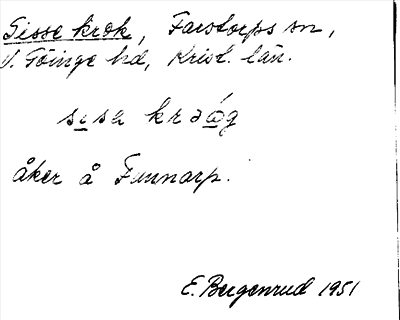 Sisse krok, Farstorps sn,
V. Göinge hd, Krist. län.
sisa kraǻg
åker å Finnarp.
E. Bergenrud 1951